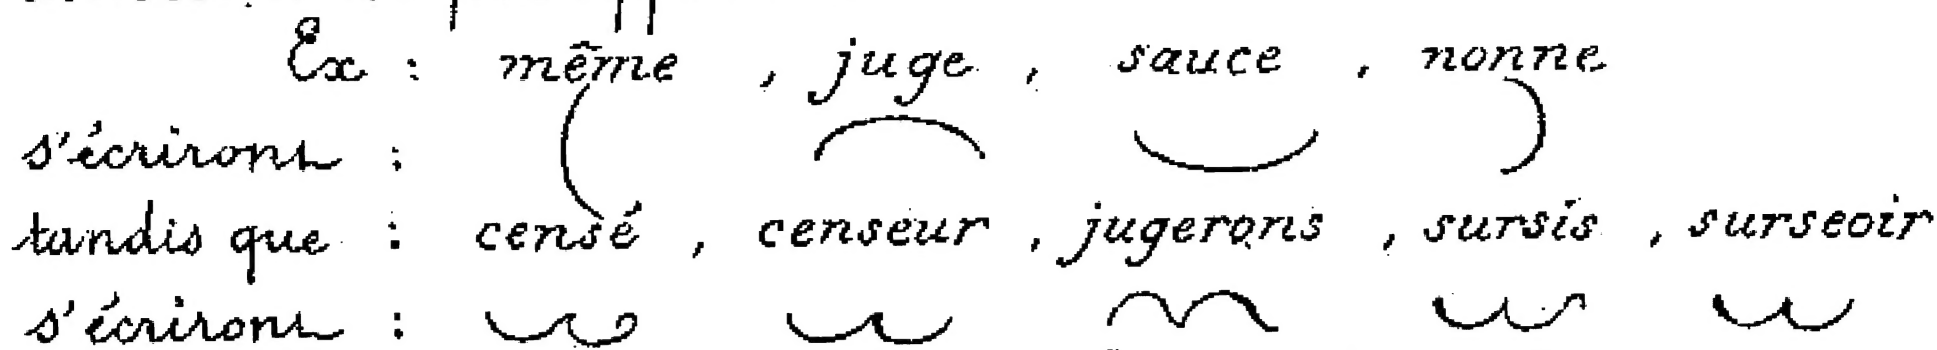 Ex : même , juge , sauce , nonne
s'écriront :
tandis que : censé , censeur , jugerons , sursis , surseoir
s'écriront :